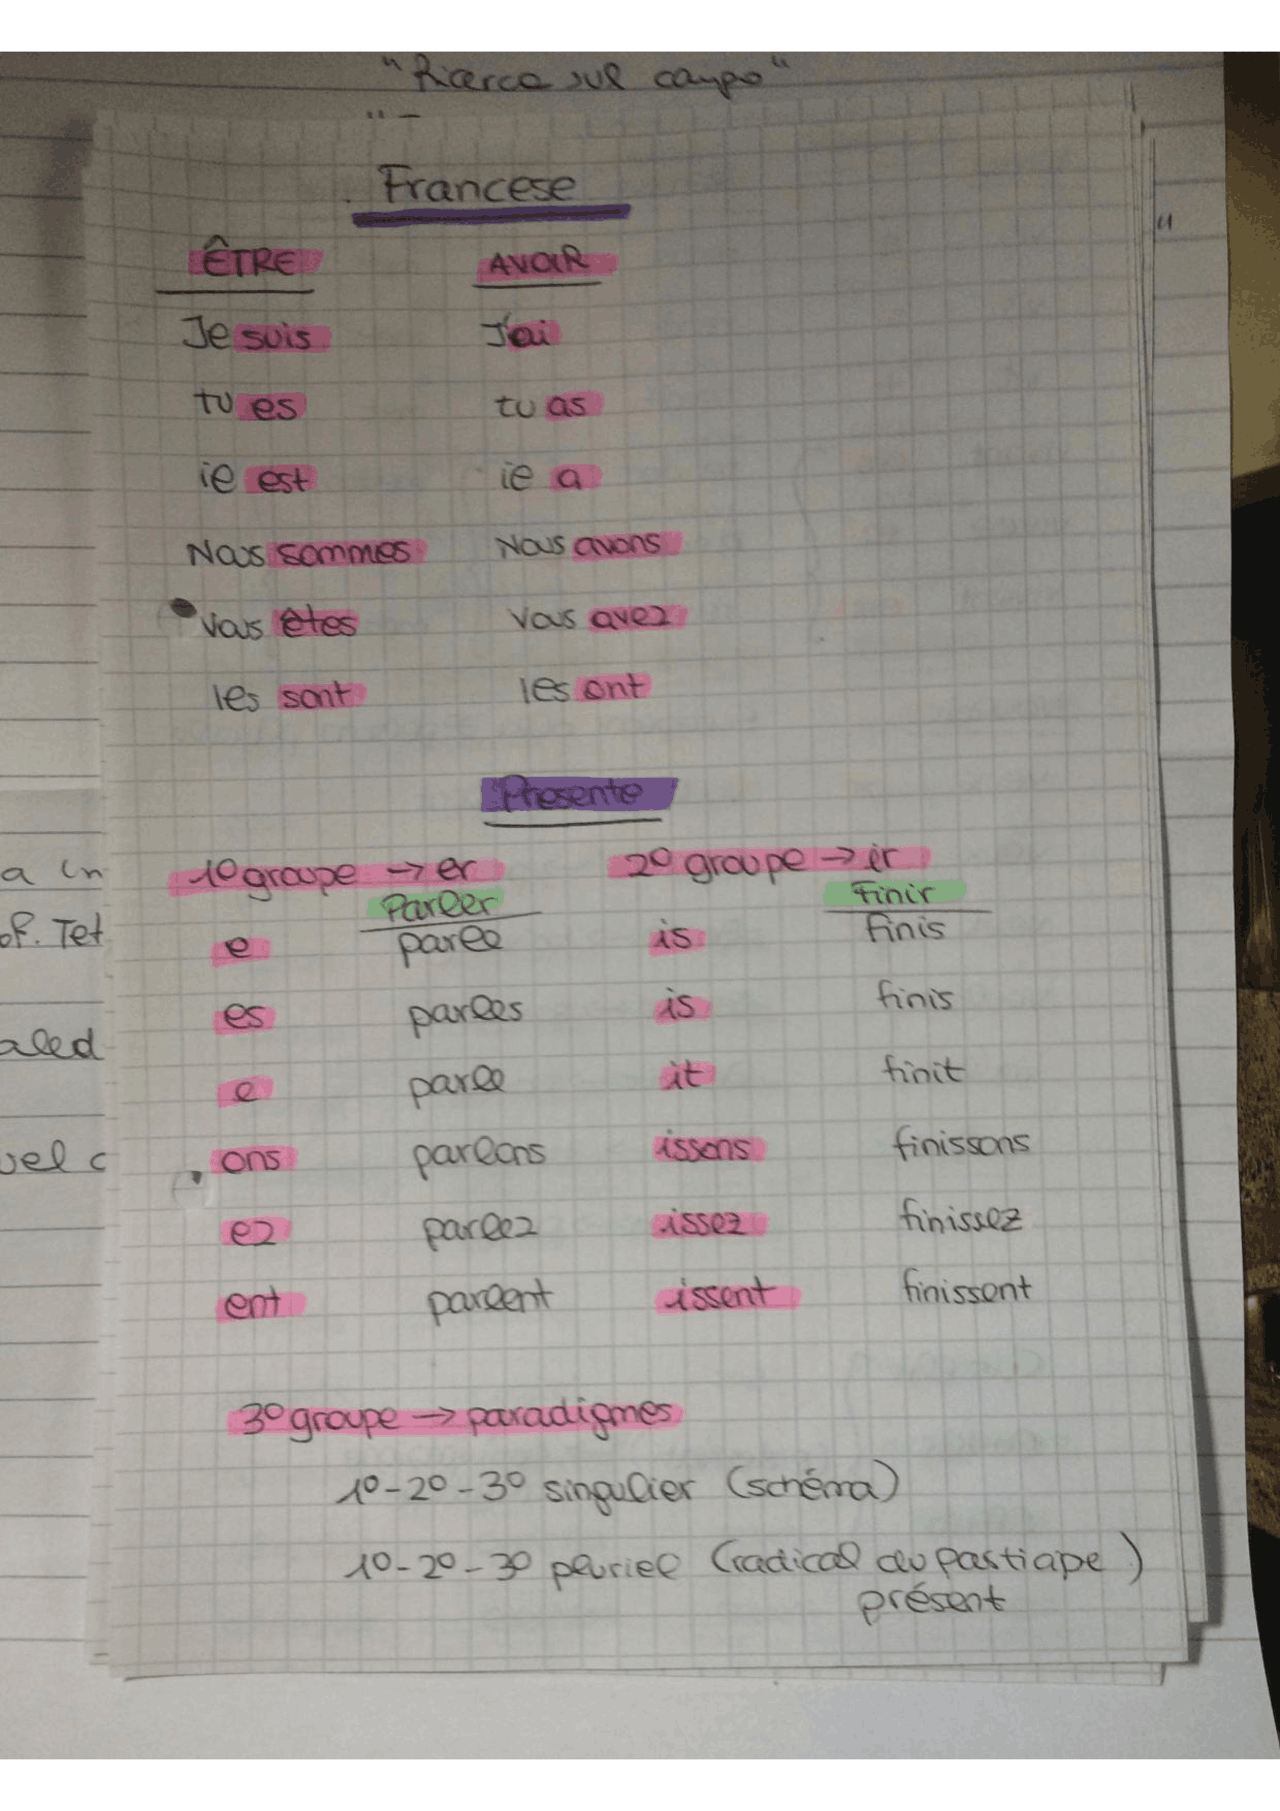 "Ricerca sul campo"
"
Francese
ÊTRE AVOIR
Je suis J'ai
tu es tu as
il est il a
Nous sommes Nous avons
Vous êtes Vous avez
Iles sont Iles ont
Presente
1º groupe → er 2º groupe → ir
Parler Finir
e parle is finis
es parles is finis
e parle it finit
ons parlons issons finissons
ez parlez issez finissez
ent parlent issent finissent
3º groupe → paradigmes
1º-2º-3º singulier (schéma)
1º-2º-3º pluriel (radical du
présent
a in
of. Tet
aled
vel c